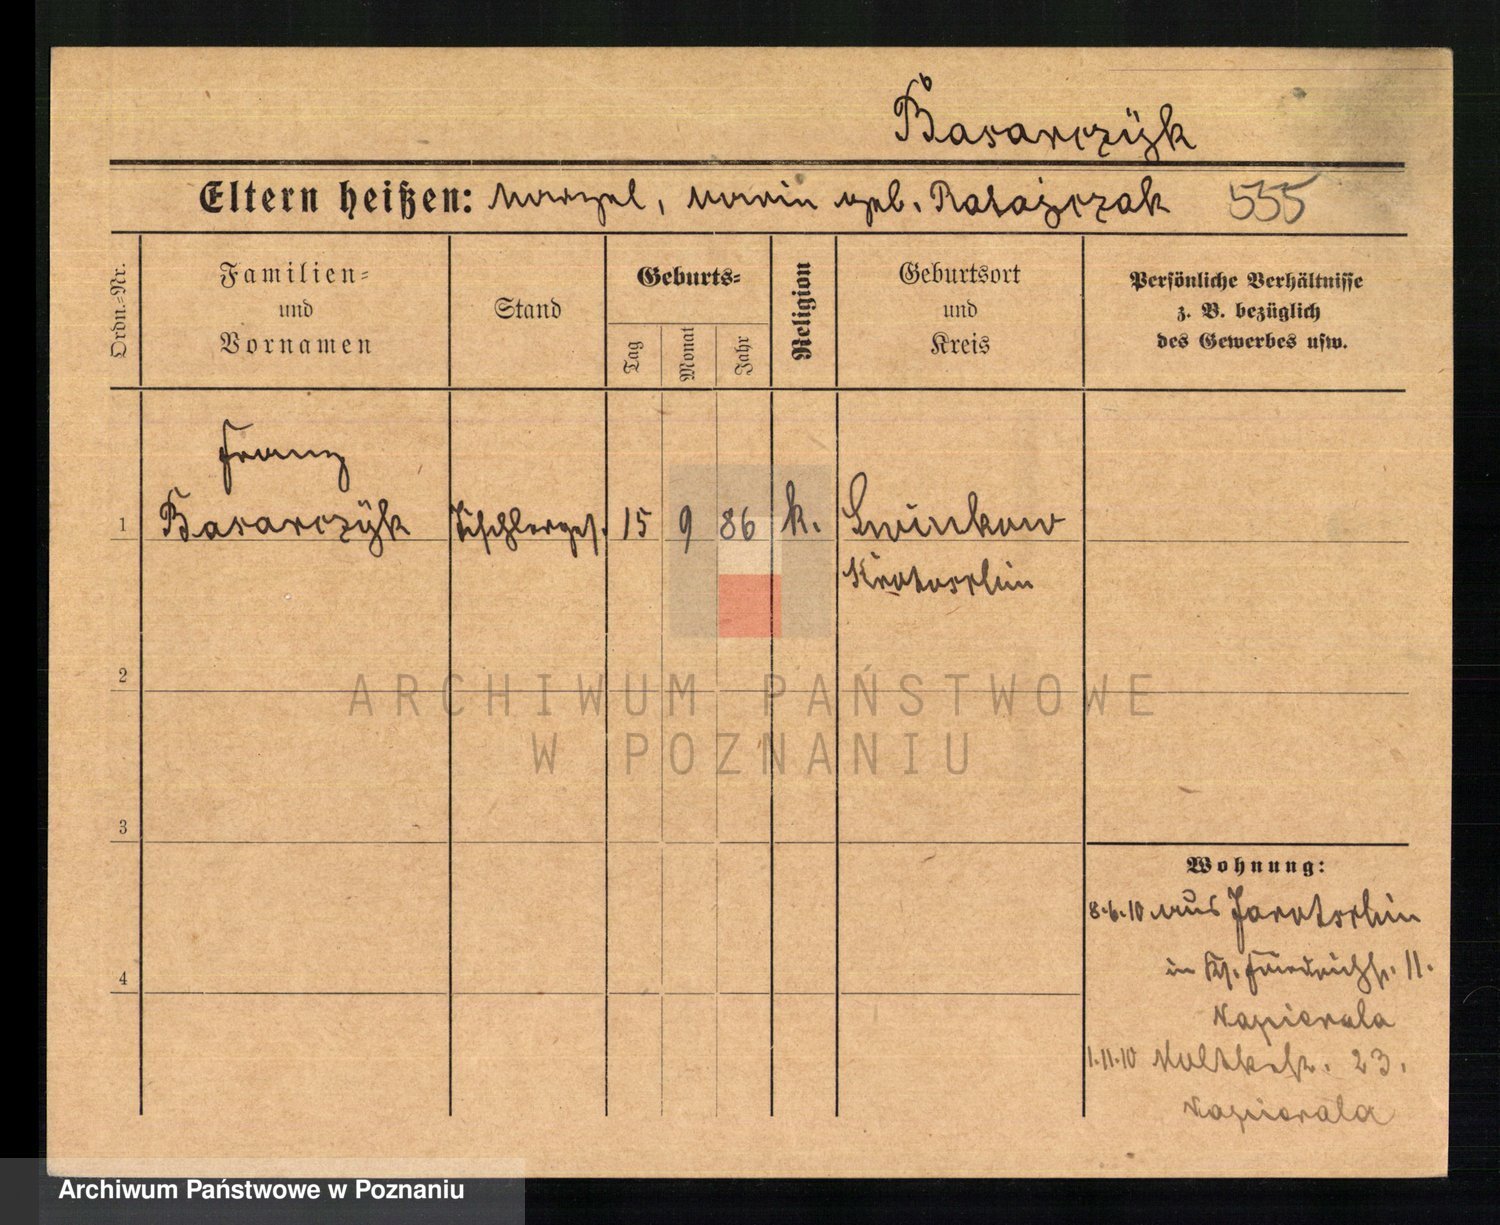 Basarczÿk
Eltern heißen: Marzel, Marin geb. Ratajczak 555
Ordn.-Nr.
Familien-
und
Vornamen
Stand
Geburts-
Tag
Monat
Jahr
Religion
Geburtsort
und
Kreis
Persönliche Verhältnisse
z. B. bezüglich
des Gewerbes usw.
Franz
1 Basarczÿk Tischlerges. 15 9 86 k. Swinkow
Krotoschin
2
3
4
Wohnung:
8.6.10 aus Jarotschin
in Friedrichstr. 11.
Napierala
1.11.10 Moltkestr. 23.
Napierala
ARCHIWUM PAŃSTWOWE
W POZNANIU
Archiwum Państwowe w Poznaniu